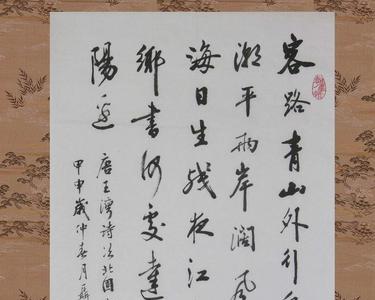 客路青山外行
潮平兩岸闊風
海日生残夜江
鄉書何處達
陽邊
唐王灣詩次北固
甲申歲仲春月聶